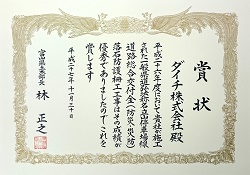 賞状
ダイチ株式会社殿
平成二十六年度において貴社が施工
された一般県道
道路総合交付金(防災・災防)
落石防護柵工工事はその成績が
優秀でありましたのでこれを
賞します
平成二十七年十一月二十日
林 正之